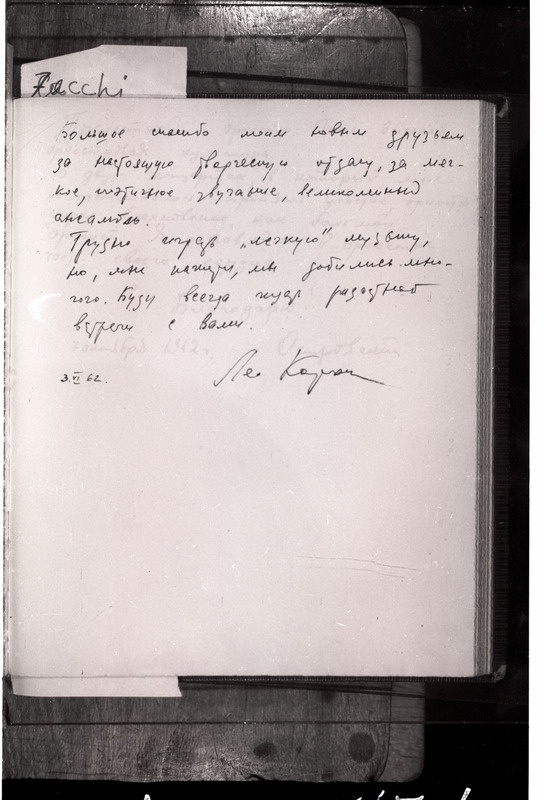 Zecchi
Большое спасибо моим новым друзьям
за настоящую творческую отдачу, за мяг-
кое, поэтичное звучание, великолепный
ансамбль.
Трудно играть „легкую“ музыку,
но, мне кажется, мы добились мно-
гого. Буду всегда ждать радостной
встречи с Вами.
3.VI 62.
Лео